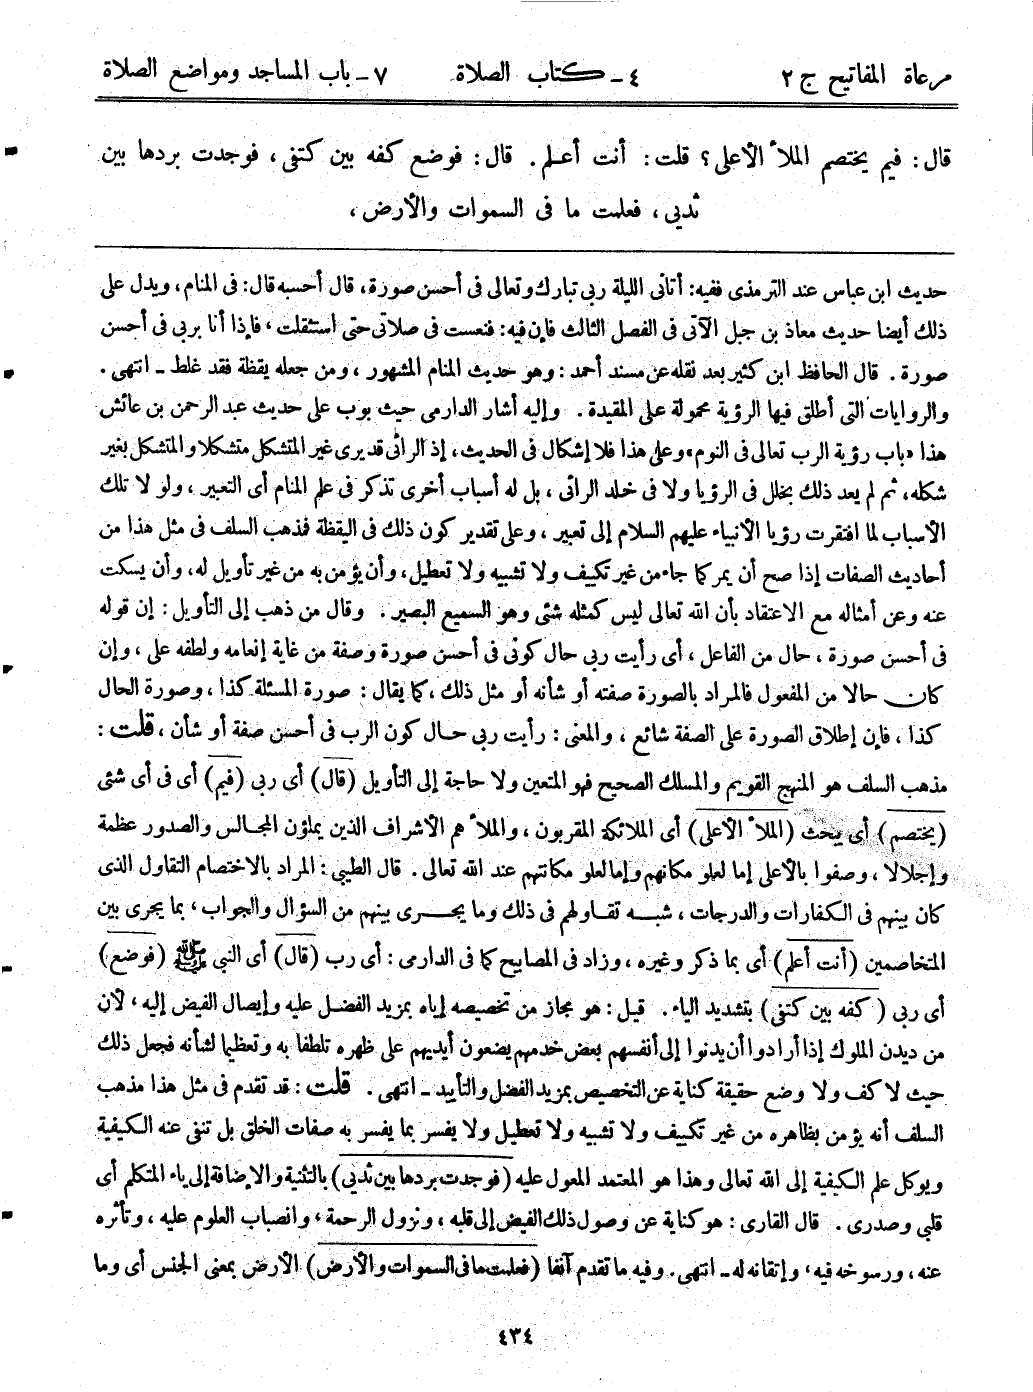 مرعاة المفاتيح ج ٢ ٤ ـ كتاب الصلاة ٧ ـ باب المساجد ومواضع الصلاة
قال: فيم يختصم الملأ الأعلى؟ قلت: أنت أعلم. قال: فوضع كفه بين كتفى، فوجدت بردها بين
ثدبى، فعلمت ما فى السموات والأرض،
حديث ابن عباس عند الترمذى ففيه: أتانى الليلة ربى تبارك وتعالى فى أحسن صورة، قال أحسبه قال: فى المنام، ويدل على
ذلك أيضا حديث معاذ بن جبل الآتى فى الفصل الثالث فإن فيه: فنعست فى صلاتى حتى استثقلت، فإذا أنا بربى فى أحسن
صورة. قال الحافظ ابن كثير بعد نقله عن مسند أحمد: وهو حديث المنام المشهور، ومن جعله يقظة فقد غلط ـ انتهى.
والروايات التى أطلق فيها الرؤية محمولة على المقيدة. وإليه أشار الدارمى حيث بوب على حديث عبد الرحمن بن عائش
هذا «باب رؤية الرب تعالى فى النوم» وعلى هذا فلا إشكال فى الحديث، إذ الرائى قد يرى غير المتشكل متشكلا والمتشكل بغير
شكله، ثم لم يعد ذلك بخلل فى الرؤيا ولا فى خلد الرائى، بل له أسباب أخرى تذكر فى علم المنام أى التعبير، ولو لا تلك
الأسباب لما افتقرت رؤيا الأنبياء عليهم السلام إلى تعبير، وعلى تقدير كون ذلك فى اليقظة فمذهب السلف فى مثل هذا من
أحاديث الصفات إذا صح أن يمر كما جاء من غير تكييف ولا تشبيه ولا تعطيل، وأن يؤمن به من غير تأويل له، وأن يسكت
عنه وعن أمثاله مع الاعتقاد بأن الله تعالى ليس كمثله شئى وهو السميع البصير. وقال من ذهب إلى التأويل: إن قوله
فى أحسن صورة، حال من الفاعل، أى رأيت ربى حال كونى فى أحسن صورة وصفة من غاية إنعامه ولطفه على، وإن
كان حالا من المفعول فالمراد بالصورة صفته أو شأنه أو مثل ذلك، كما يقال: صورة المسئلة كذا، وصورة الحال
كذا، فإن إطلاق الصورة على الصفة شائع، والمعنى: رأيت ربى حال كون الرب فى أحسن صفة أو شأن، قلت:
مذهب السلف هو المنهج القويم والمسلك الصحيح فهو المتعين ولا حاجة إلى التأويل (قال) أى ربى (فيم) أى فى أى شئى
(يختصم) أى يبحث (الملأ الأعلى) أى الملائكة المقربون، والملأ هم الأشراف الذين يملؤن المجالس والصدور عظمة
وإجلالا، وصفوا بالأعلى إما لعلو مكانهم وإما لعلو مكانتهم عند الله تعالى. قال الطيبى: المراد بالاختصام التقاول الذى
كان بينهم فى الكفارات والدرجات، شبه تقاولهم فى ذلك وما يجرى بينهم من السؤال والجواب، بما يجرى بين
المتخاصمين (أنت أعلم) أى بما ذكر وغيره، وزاد فى المصابيح كما فى الدارمى: أى رب (قال) أى النبى ﷺ (فوضع)
أى ربى (كفه بين كتفى) بتشديد الياء. قيل: هو مجاز من تخصيصه إياه بمزيد الفضل عليه وإيصال الفيض إليه، لأن
من ديدن الملوك إذا أرادوا أن يدنوا إلى أنفسهم بعض خدمهم يضعون أيديهم على ظهره تلطفا به وتعظيما لشأنه فجعل ذلك
حيث لا كف ولا وضع حقيقة كناية عن التخصيص بمزيد الفضل والتأييد ـ انتهى. قلت: قد تقدم فى مثل هذا مذهب
السلف أنه يؤمن بظاهره من غير تكييف ولا تشبيه ولا تعطيل ولا يفسر بما يفسر به صفات الخلق بل تنفى عنه الكيفية
ويوكل علم الكيفية إلى الله تعالى وهذا هو المعتمد المعول عليه (فوجدت بردها بين ثدبى) بالتثنية والإضافة إلى ياء المتكلم أى
قلبى وصدرى. قال القارى: هو كناية عن وصول ذلك الفيض إلى قلبه، ونزول الرحمة، وانصباب العلوم عليه، وتأثره
عنه، ورسوخه فيه، وإتقانه له ـ انتهى. وفيه ما تقدم آنفا (فعلمت ما فى السموات والأرض) الأرض بمعنى الجنس أى وما
٤٣٤